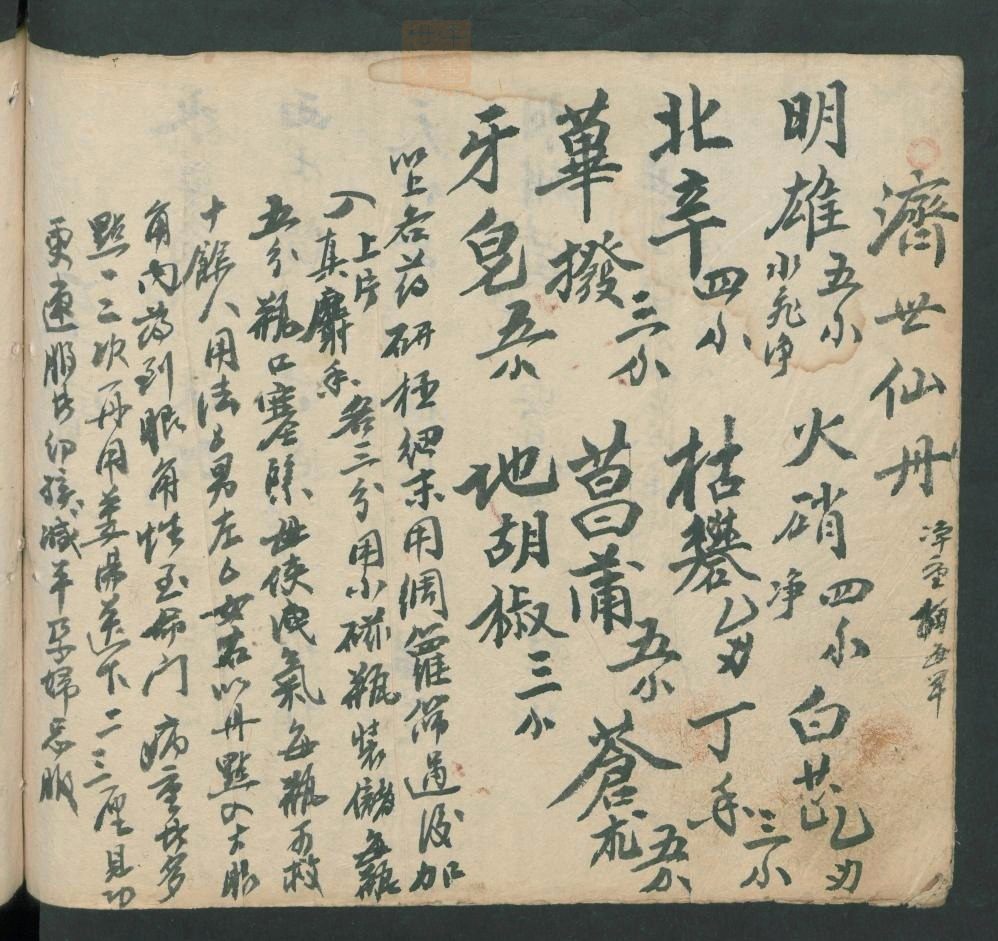 濟世仙丹
明雄五小水飛净 火硝四小净 白芷乙刃
北辛四小 枯礬乙刃 丁香三小
蓽撥三小 菖蒲五小 蒼朮五小
牙皂五小 地胡椒三小
以上各药研極細末用綢籮篩過後加
入上片真麝香各三分用小磁瓶裝儲每瓶
五分瓶口塞緊毋使洩氣每瓶可救
十餘人用法男左女右以丹點入大眼
角內药到眼角性至命门病重者多
點一二次再用姜湯送下二三厘見功
更速服此幼孩減半孕婦忌服